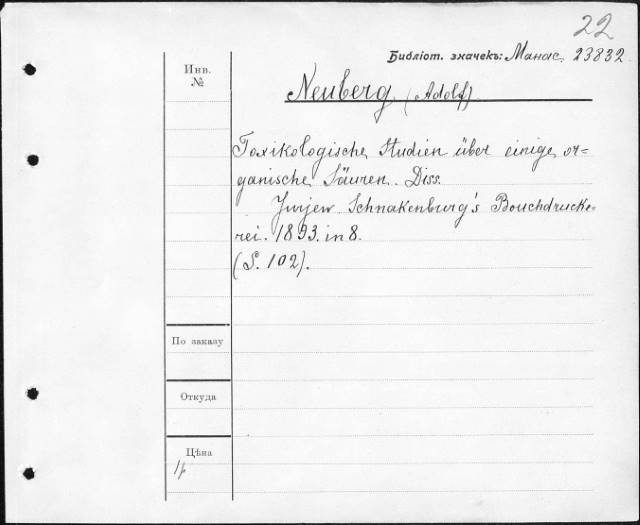 22
Библіот. значекъ: Манас. 23832.
Инв.
№
Neuberg (Adolf)
Toxikologische Studien über einige or=
ganische Säuren. Diss.
Jurjew. Schnakenburg's Bouchdrucke-
rei. 1893. in 8.
(S. 102).
По заказу
Откуда
Цѣна